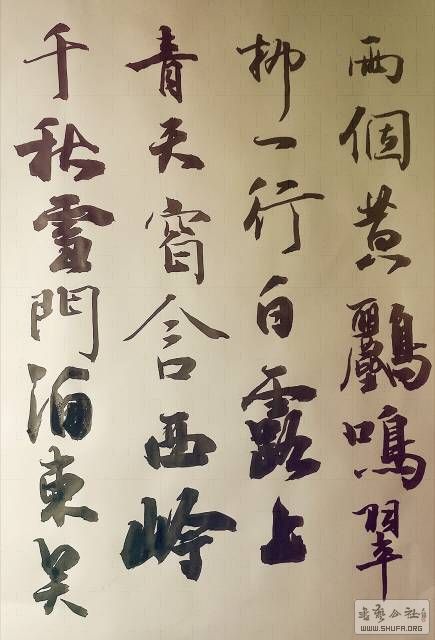 兩個黄鸝鳴翠
柳一行白露上
青天窗含西岭
千秋雪門泊東吴
书艺公社
WWW.SHUFA.ORG